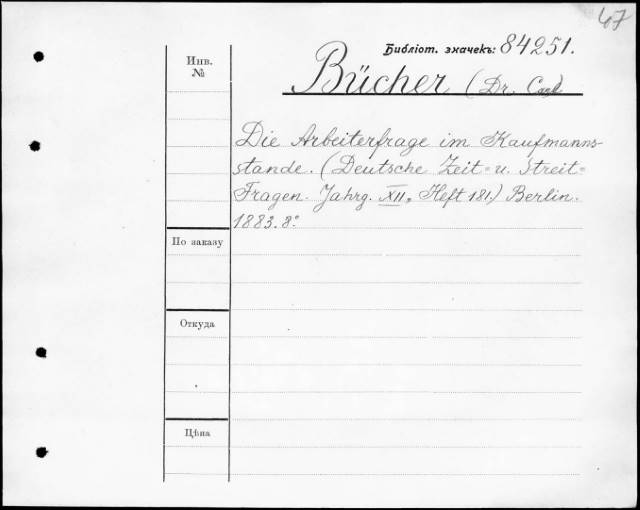 67
Библіот. значекъ: 84251.
Инв.
№
Bücher (Dr. Carl
Die Arbeiterfrage im Kaufmanns-
stande. (Deutsche Zeit= u. Streit=
Fragen. Jahrg. XII, Heft 181.) Berlin.
1883. 8°.
По заказу
Откуда
Цѣна